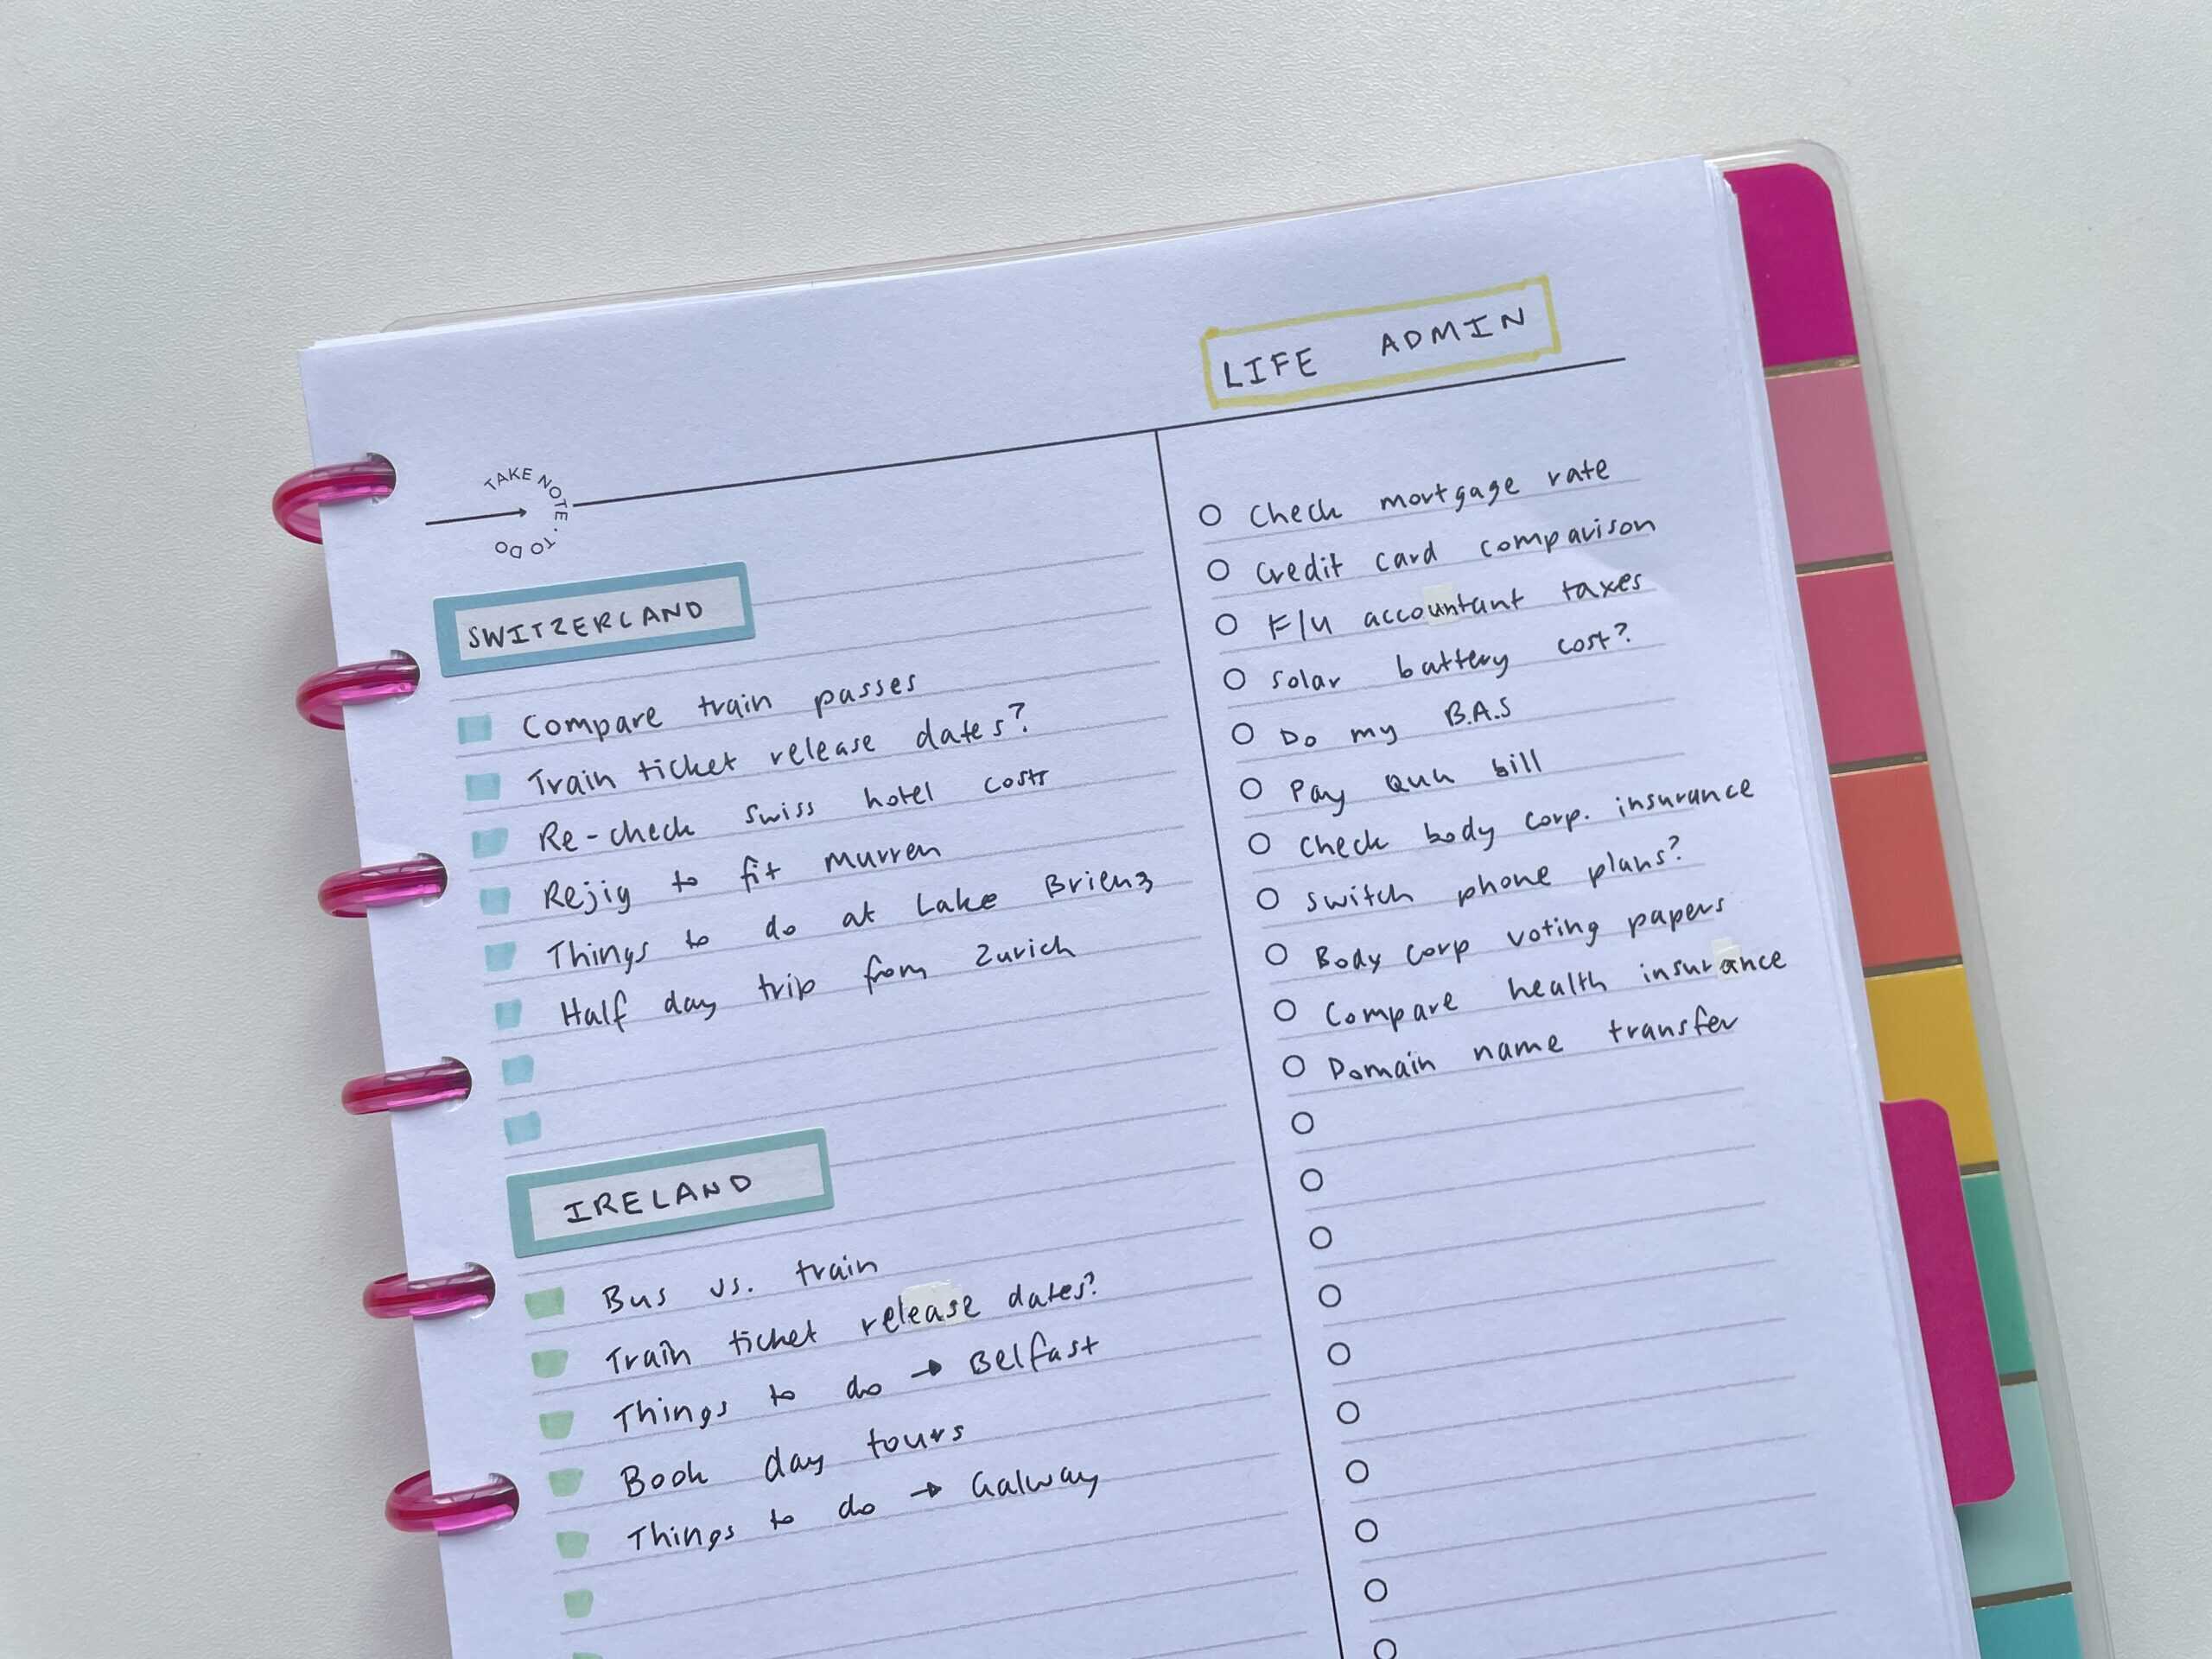 LIFE ADMIN
TAKE NOTE · TO DO
SWITZERLAND
Compare train passes
Train ticket release dates?
Re-check swiss hotel costs
Rejig to fit murren
Things to do at Lake Brienz
Half day trip from Zurich
IRELAND
Bus vs. train
Train ticket release dates?
Things to do → Belfast
Book day tours
Things to do → Galway
Check mortgage rate
Credit card comparison
F/u accountant taxes
Solar battery cost?
Do my B.A.S
Pay bill
Check body corp. insurance
Switch phone plans?
Body corp voting papers
Compare health insurance
Domain name transfer